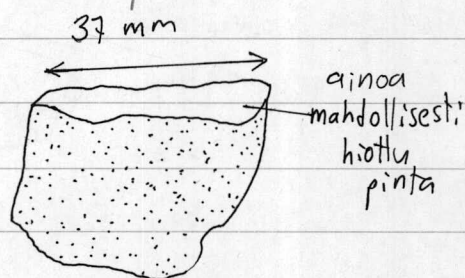 37 mm
ainoa
mahdollisesti
hiottu
pinta